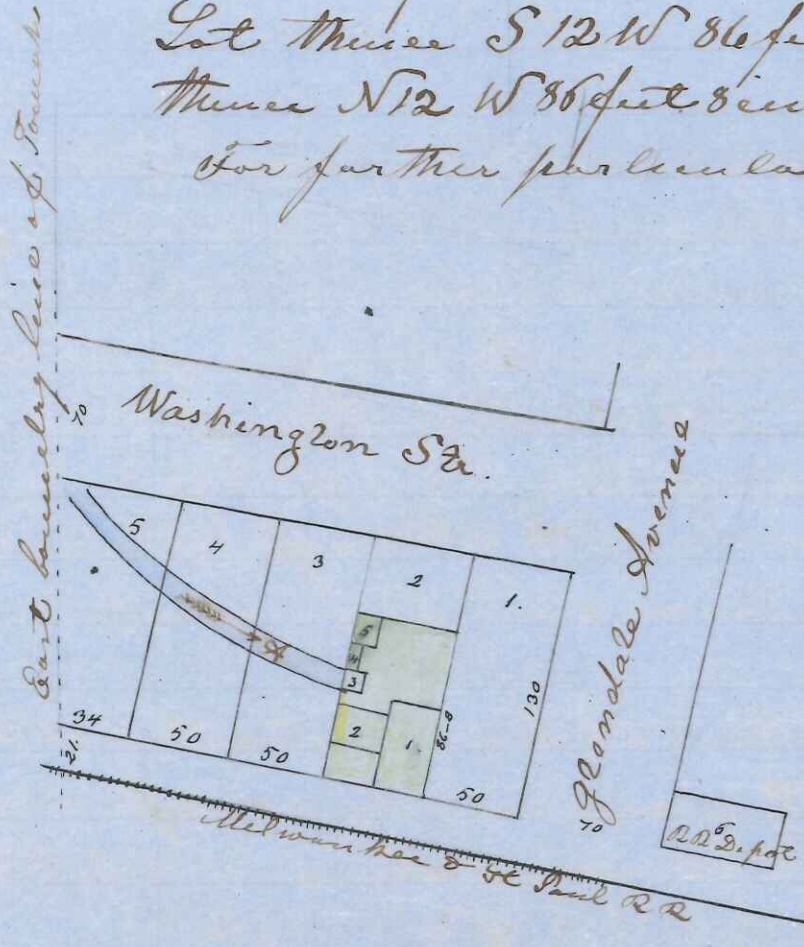 Lot thence S 12 W 86 fe
thence N 12 W 86 feet 8 in
For further particula
East boundry line of
70
Washington Str.
5
4
3
2
1.
5
4
3
2
1.
86-8
130
34
50
50
50
21.
Glendale Avenue
70
6
RR Depot
Milwaukee & St Paul RR